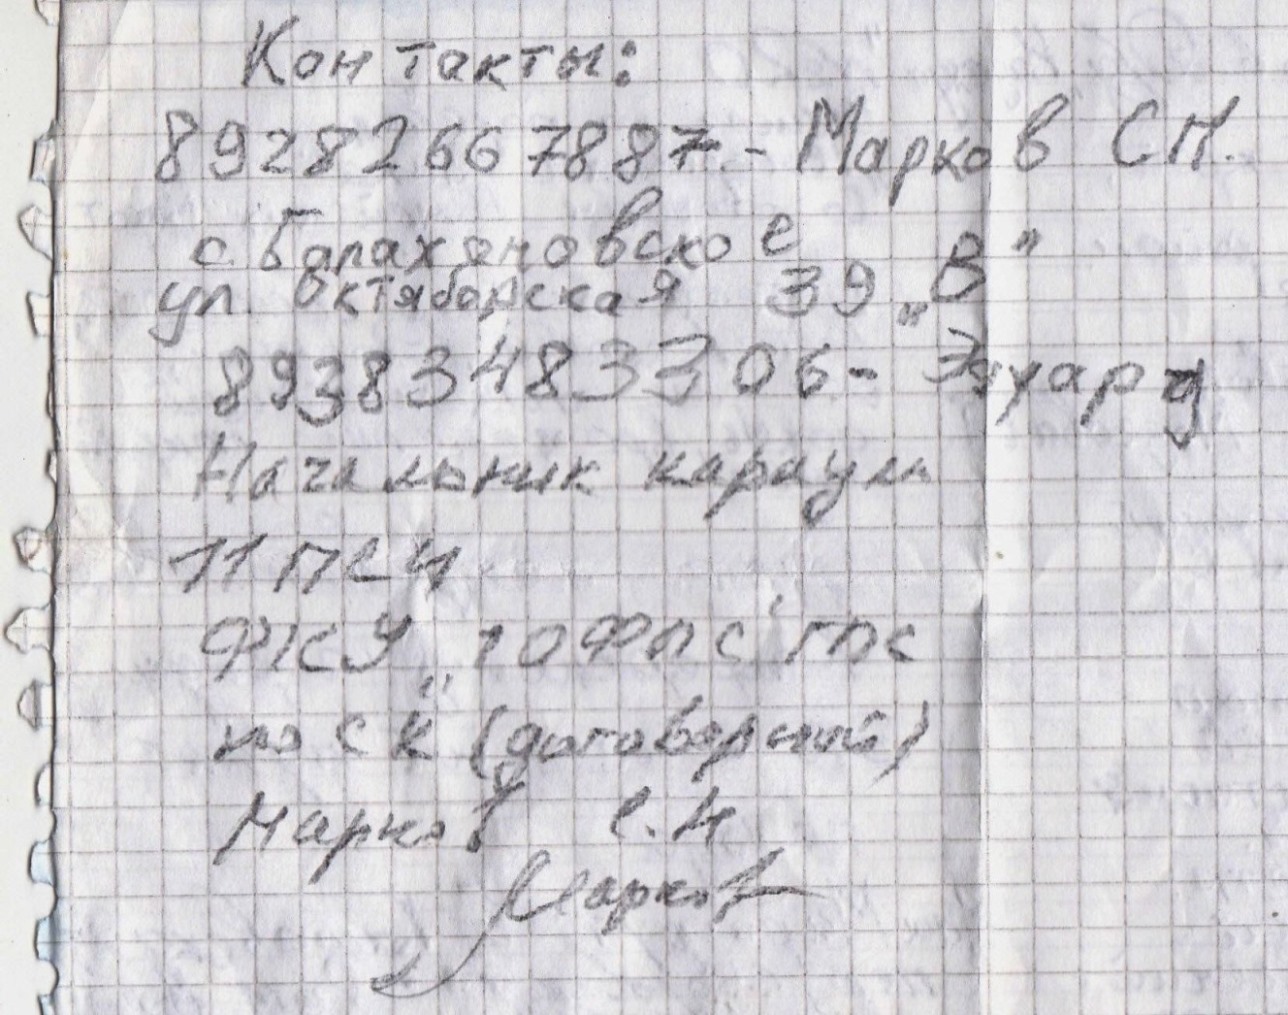 Контакты:
89282667887 - Марков С Н.
с. Балахоновское
ул. Октяборская 39 „В"
89383483306 - Эдуард
Начальник караула
11 ПСЧ
ФКУ „10 ФПС ГПС
по СК" (договорной)
Марков С. Н
Марков